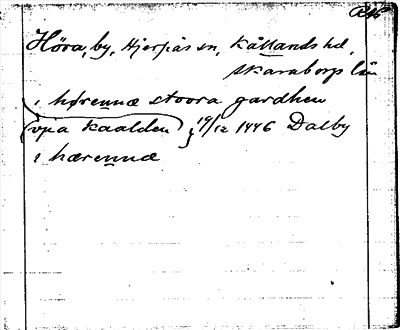 Höra, by, Hjerpås sn, Kållands hd,
Skaraborgs län
i hørennæ stoora gardhen
vpa kaalden } 19/12 1446 Dalby
i hærennæ